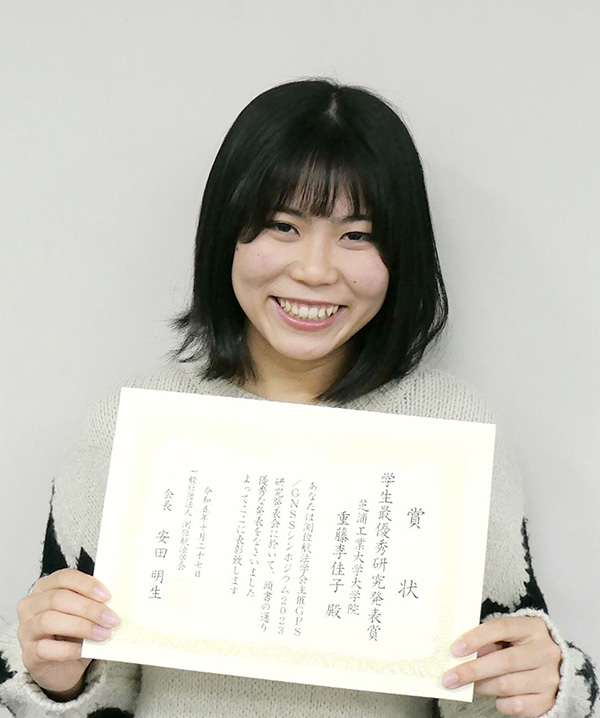 賞状
学生最優秀研究発表賞
芝浦工業大学大学院
重藤李佳子 殿
あなたは測位航法学会主催GPS
/GNSSシンポジウム2023
研究発表会に於いて、頭書の通り
優秀な発表をなさいました
よってここに表彰致します
令和五年十月二十七日
一般社団法人 測位航法学会
会長 安田 明生